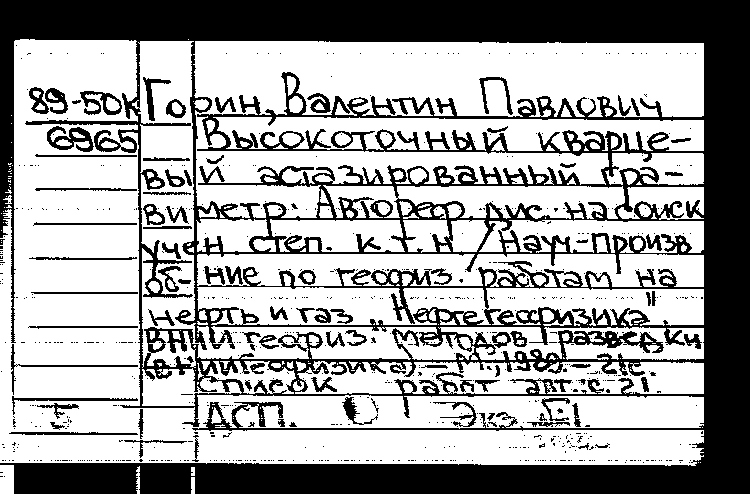 89-50к Горин, Валентин Павлович
6965 Высокоточный кварце-
вый астазированный гра-
виметр: Автореф. дис. на соиск
учен. степ. к.т.н. / Науч.-произв.
об-ние по геофиз. работам на
нефть и газ „Нефтегеофизика".
ВНИИ геофиз. методов разведки
(ВНИИГеофизика). – М., 1989. – 21с.
Список работ авт.: с. 21.
5 ДСП. Экз.